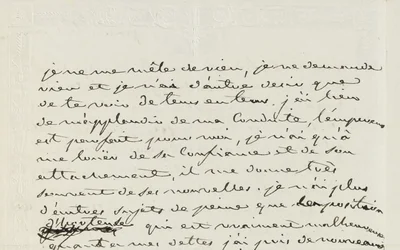 je ne me mêle de rien, je ne demande
rien et je n'ai d'autre desir que
de te voir de tems en tems. j'ai lieu
de m'applaudir de ma Conduite, l'empereur
est parfait pour moi, je n'ai qu'à
me louer de sa Confiance et de son
attachement, il me donne très
souvent de ses nouvelles. je n'ai plus
d'autres sujets de peine que la position
d'hortense qui est vraiment malheureuse
quant à mes dettes j'ai puis de nouveaux